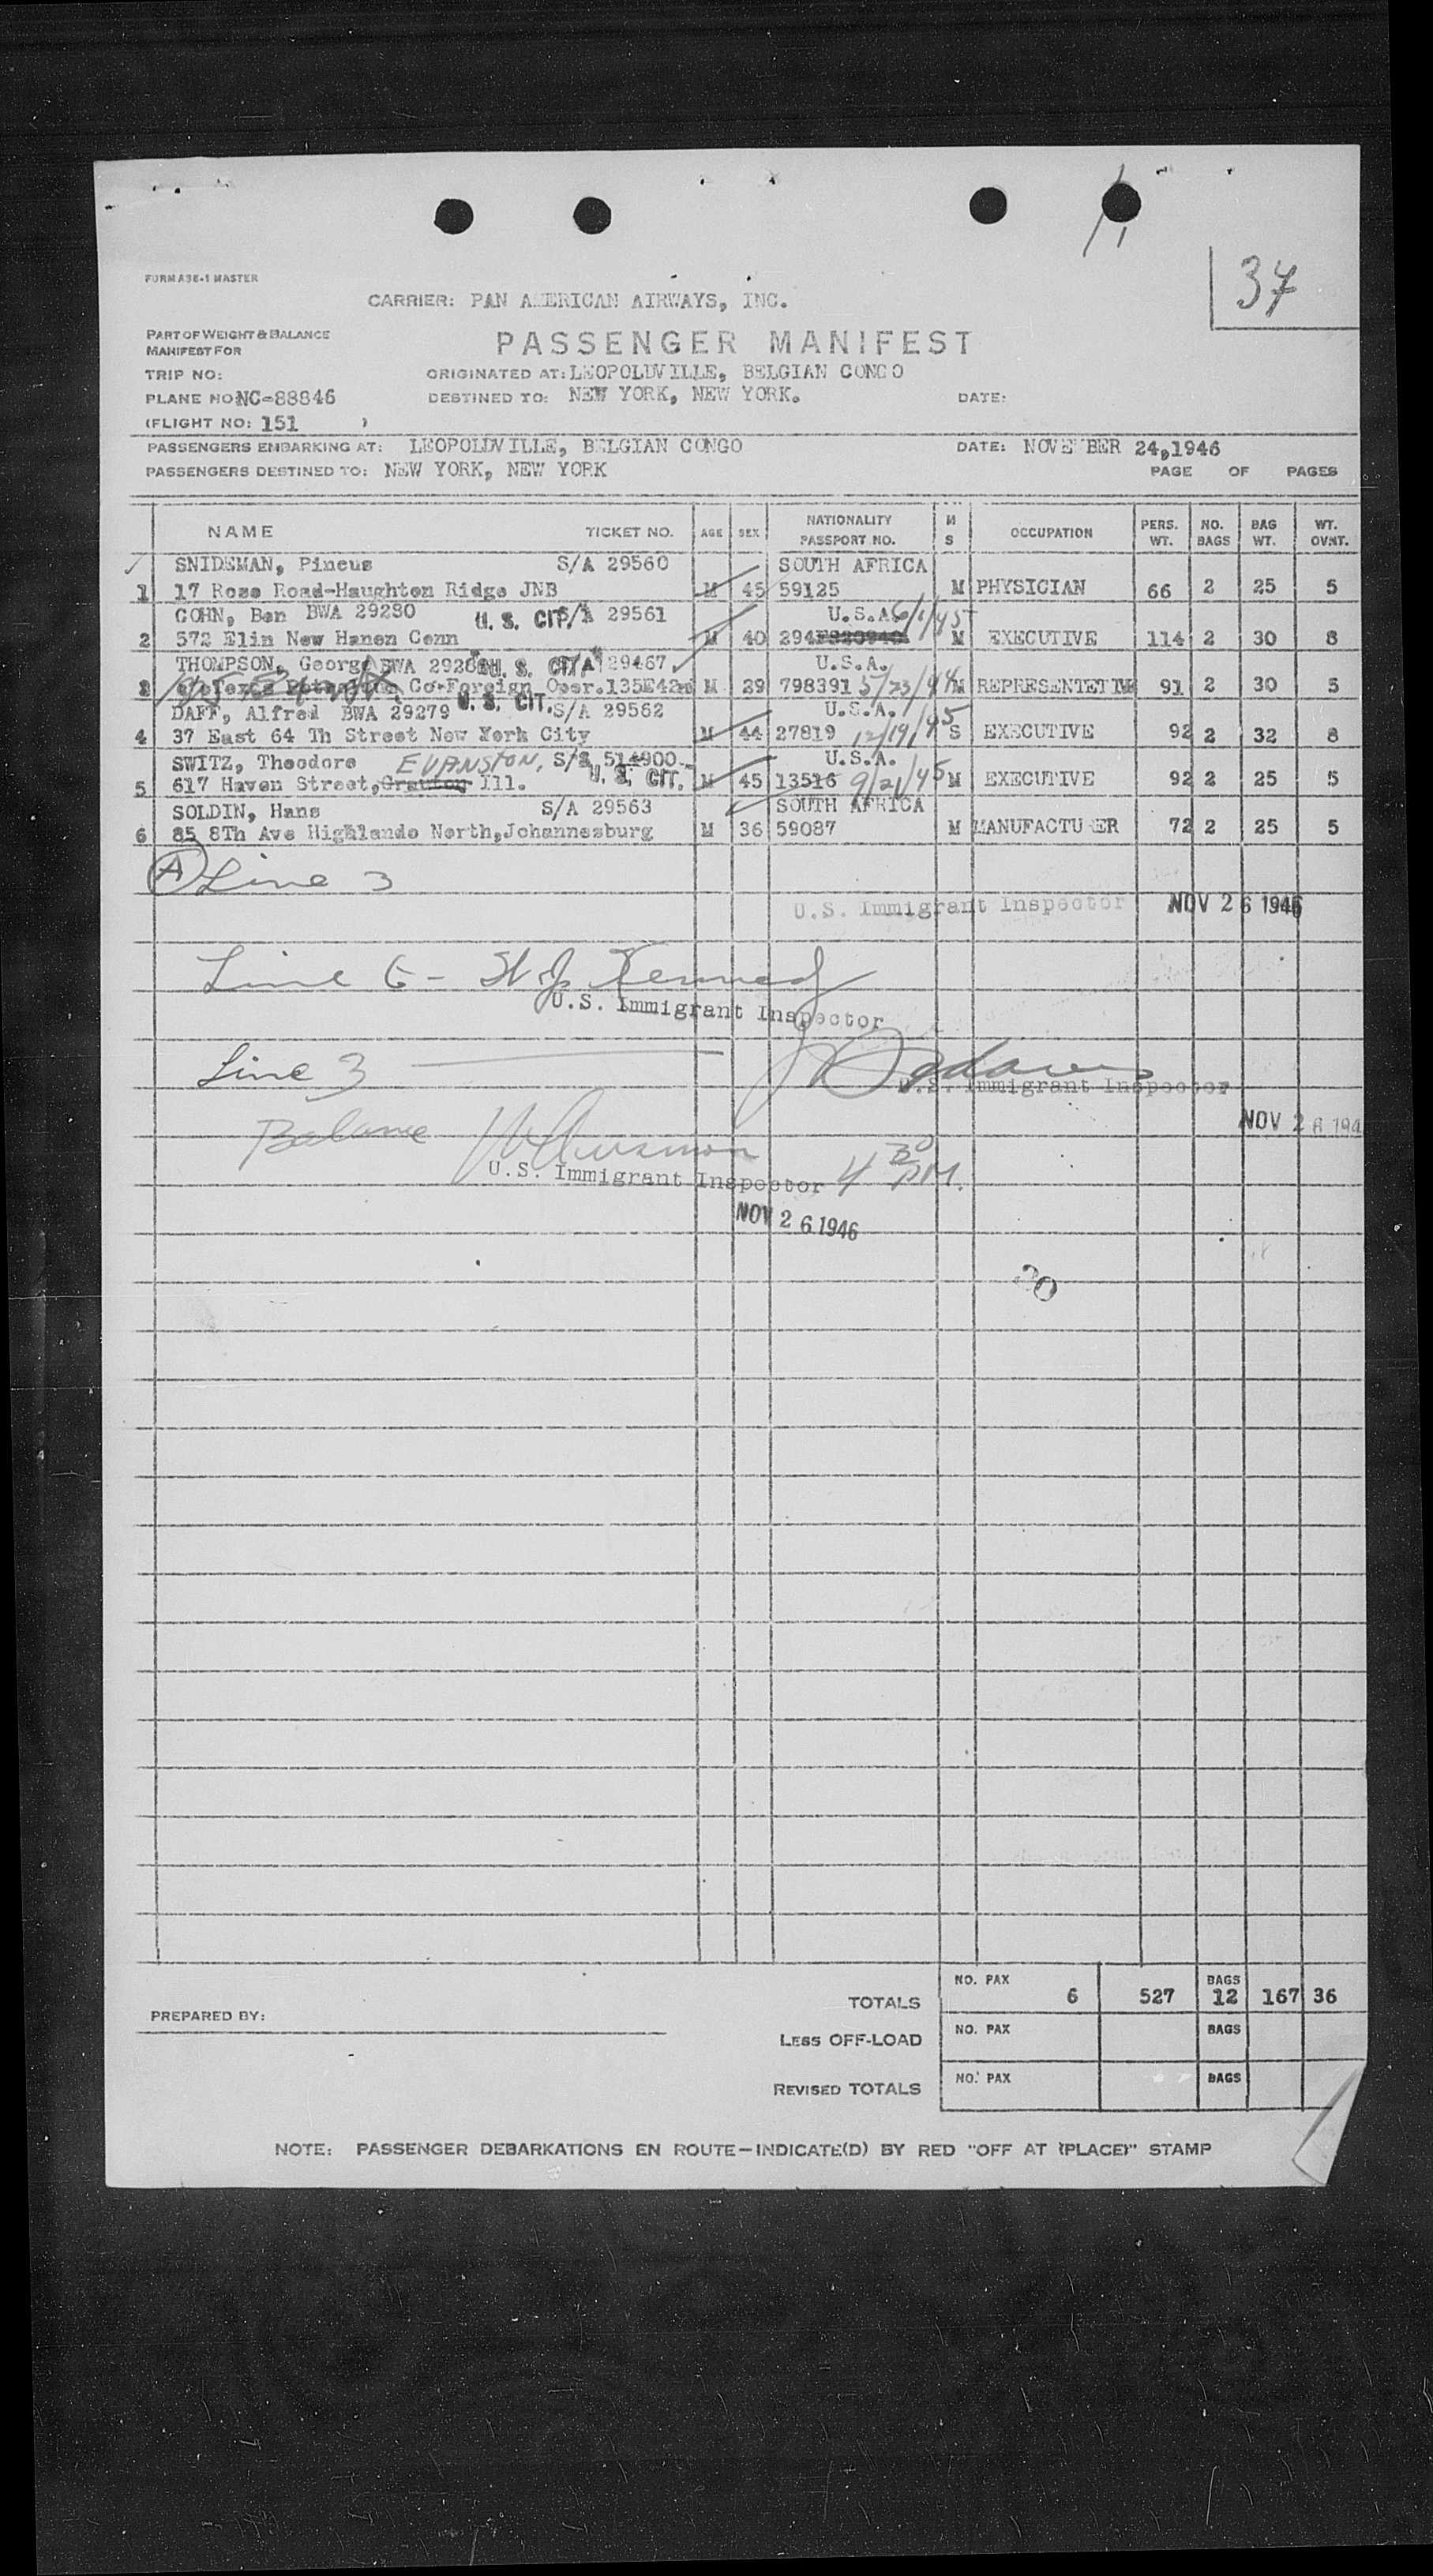 37
FORM A36-1 MASTER
CARRIER: PAN AMERICAN AIRWAYS, INC.
PART OF WEIGHT & BALANCE
MANIFEST FOR
PASSENGER MANIFEST
TRIP NO:
ORIGINATED AT: LEOPOLDVILLE, BELGIAN CONGO
PLANE NO: NC-88846
DESTINED TO: NEW YORK, NEW YORK. DATE:
(FLIGHT NO: 151 )
PASSENGERS EMBARKING AT: LEOPOLDVILLE, BELGIAN CONGO DATE: NOVEMBER 24,1946
PASSENGERS DESTINED TO: NEW YORK, NEW YORK PAGE OF PAGES
NAME TICKET NO. AGE SEX NATIONALITY PASSPORT NO. M S OCCUPATION PERS. WT. NO. BAGS BAG WT. WT. OVNT.
SNIDEMAN, Pincus S/A 29560 SOUTH AFRICA
1 17 Rose Road-Haughton Ridge JNB M 45 59125 M PHYSICIAN 66 2 25 5
COHN, Ben BWA 29280 U. S. CIT. S/A 29561 U.S.A. 6/1/45
2 572 Elin New Hanen Conn M 40 294 M EXECUTIVE 114 2 30 8
THOMPSON, George BWA U. S. CIT. S/A 29467 U.S.A.
3 Co-Foreign Oper.135E42 M 29 798391 5/23/44 M REPRESENTETIVE 91 2 30 5
DAFF, Alfred BWA 29279 U. S. CIT. S/A 29562 U.S.A.
4 37 East 64 Th Street New York City M 44 27819 12/19/45 S EXECUTIVE 92 2 32 8
SWITZ, Theodore EVANSTON, S/A 514900 U.S.A.
5 617 Haven Street, Ill. U. S. CIT. M 45 13516 9/21/45 M EXECUTIVE 92 2 25 5
SOLDIN, Hans S/A 29563 SOUTH AFRICA
6 85 8Th Ave Highlands North,Johannesburg M 36 59087 M MANUFACTURER 72 2 25 5
A Line 3
U.S. Immigrant Inspector NOV 26 1946
Line 6 - W J Kennedy
U.S. Immigrant Inspector
Line 3
U.S. Immigrant Inspector
NOV 26 194
Balance
U.S. Immigrant Inspector 4 30 PM.
NOV 26 1946
30
TOTALS NO. PAX 6 527 BAGS 12 167 36
PREPARED BY:
LESS OFF-LOAD NO. PAX BAGS
REVISED TOTALS NO. PAX BAGS
NOTE: PASSENGER DEBARKATIONS EN ROUTE—INDICATE(D) BY RED "OFF AT (PLACE)" STAMP